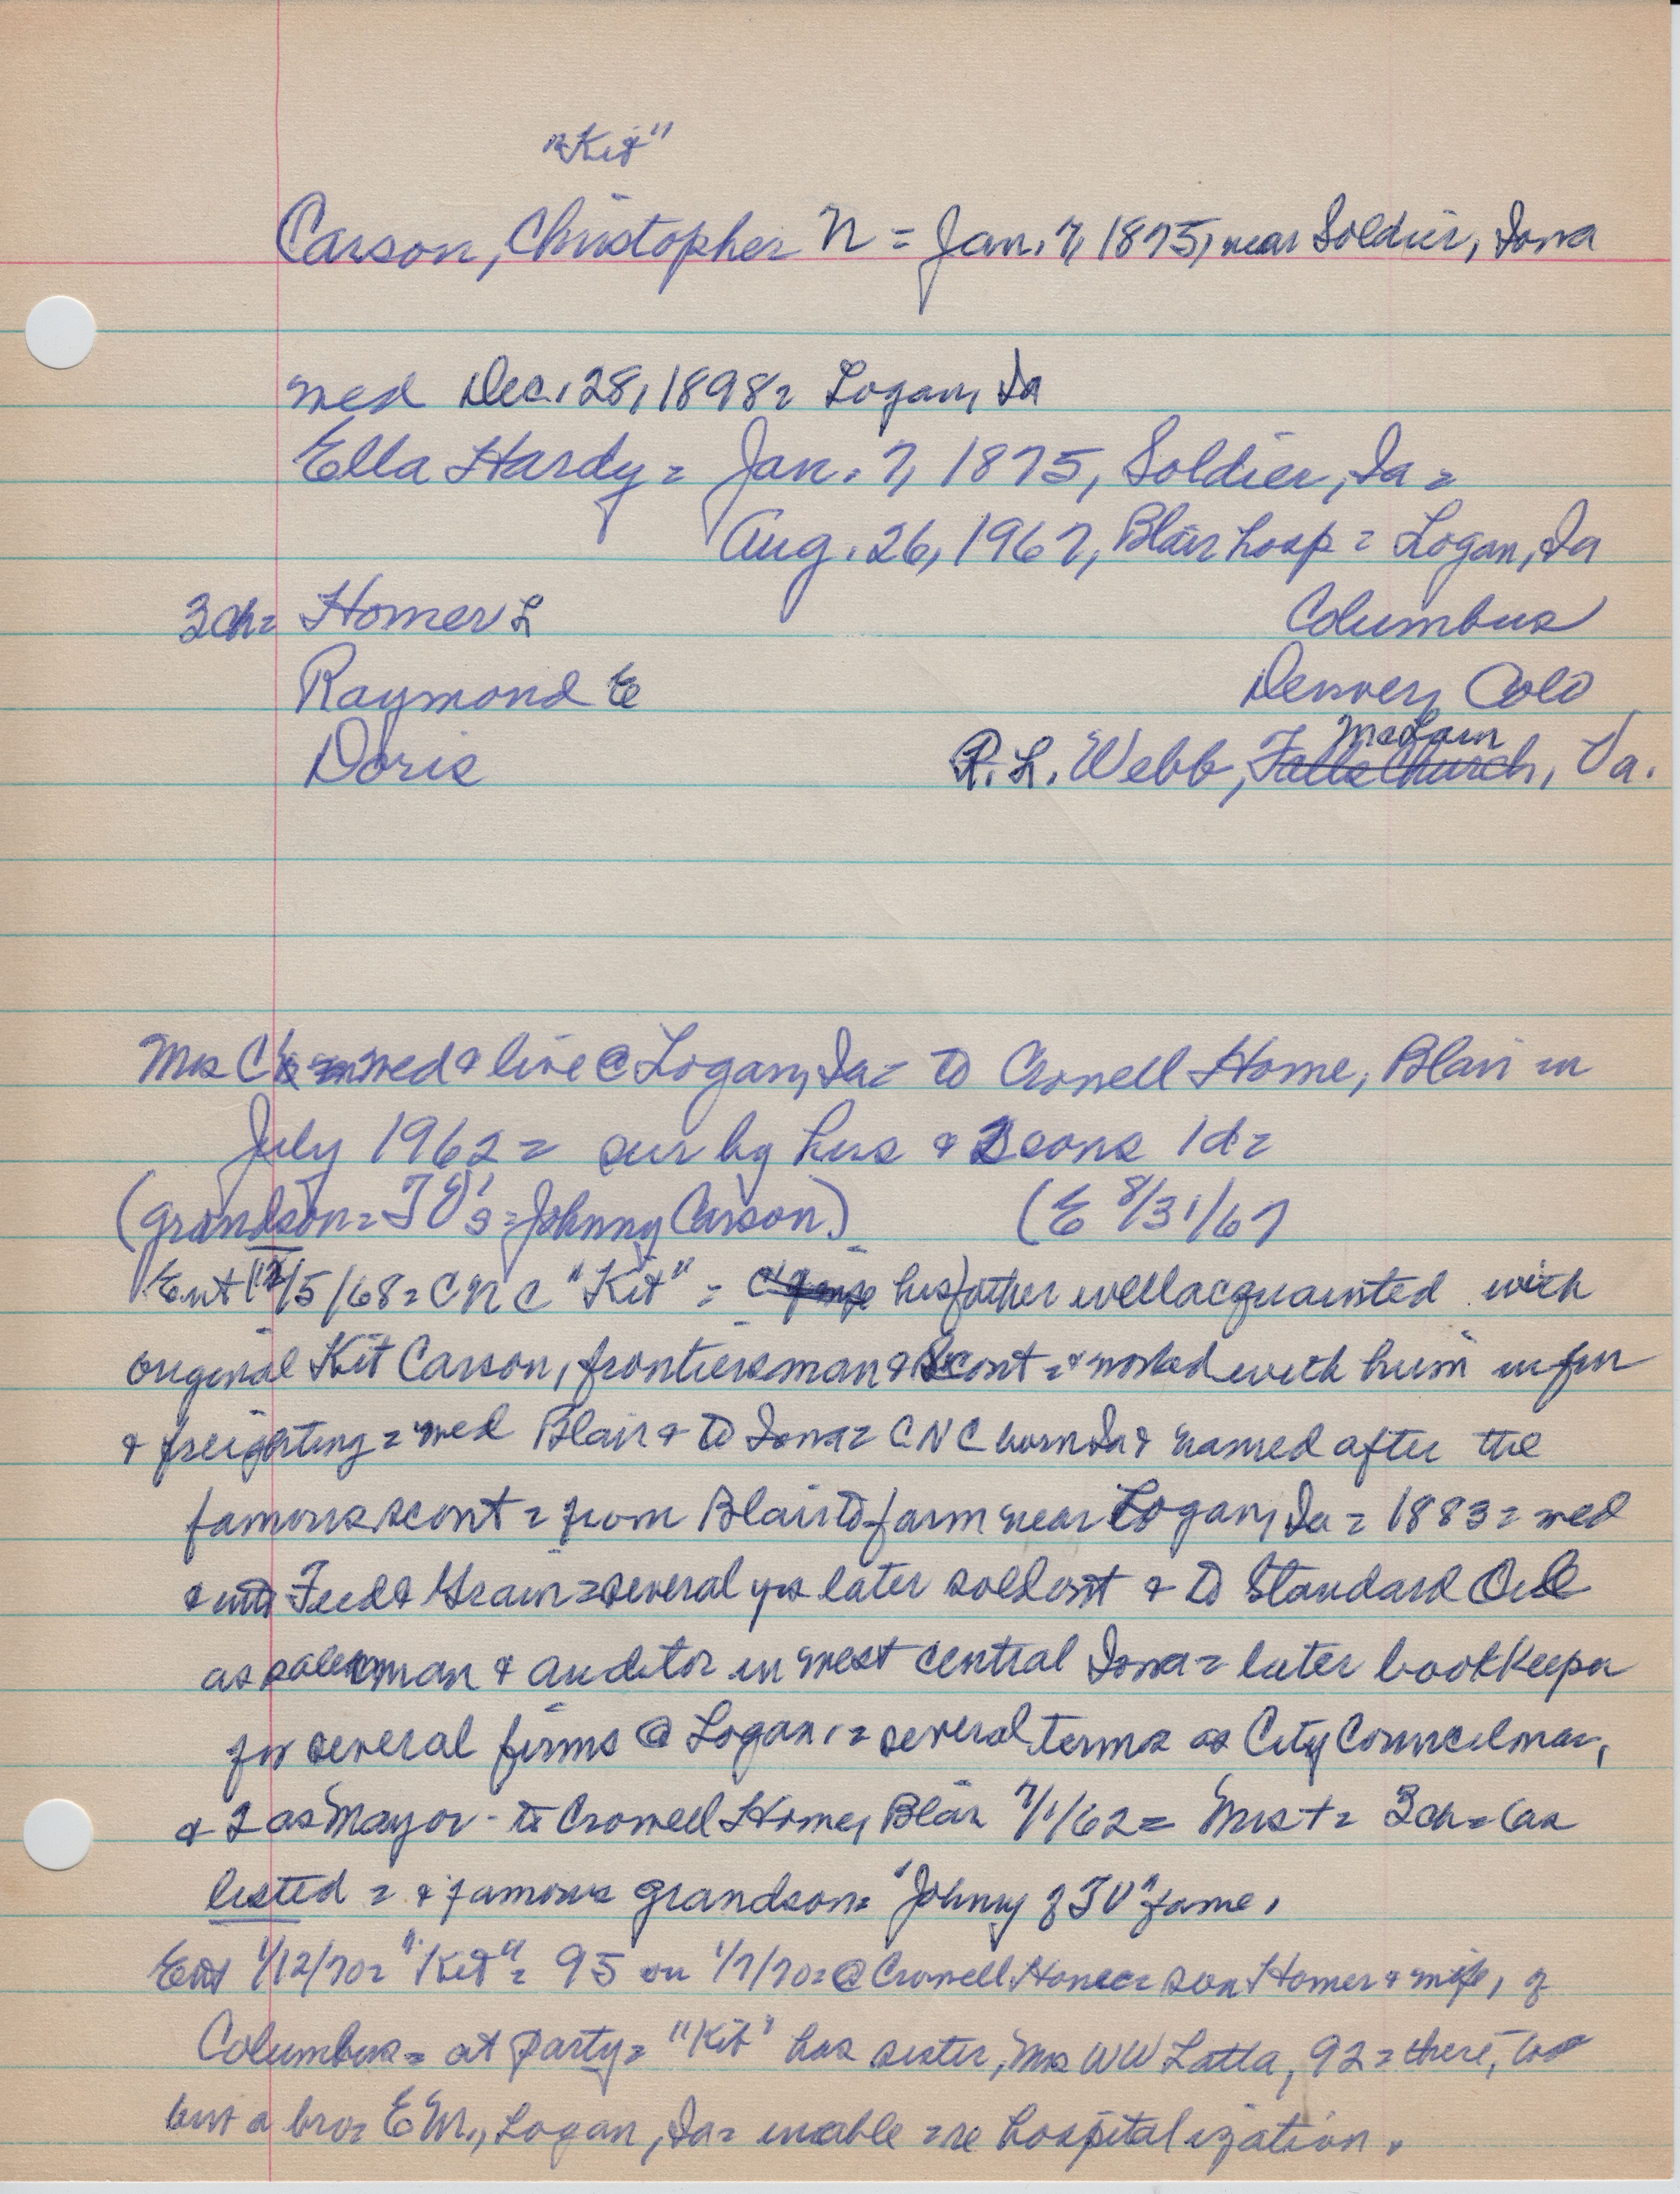 "Kit"
Carson, Christopher N = Jan. 7, 1875, near Soldier, Iowa
wed Dec. 28, 1898 = Logan, Ia
Ella Hardy = Jan. 7, 1875, Soldier, Ia =
Aug. 26, 1967, Blair hosp = Logan, Ia
3ch = Homer L Columbus
Raymond E Denver, Colo
McLain
Doris R. L. Webb, Falls Church, Va.
Mrs C wed & live @ Logan, Ia = to Crowell Home, Blair in
July 1962 = sur by hus & 2 sons 1d =
(grandson = TV's = Johnny Carson.) (E 8/31/67
Ent 12/5/68 = CNC "Kit" = his father well acquainted with
original Kit Carson, frontiersman & Scout = & worked with him in fur
& freighting = wed Blair & to Iowa = CNC born Ia & named after the
famous scout = from Blair to farm near Logan, Ia = 1883 = wed
& into Feed & Grain = several yrs later sold out & to Standard Oil
as salesman & auditor in west central Iowa = later bookkeeper
for several firms @ Logan. = several terms as City Councilman,
& 2 as Mayor - to Crowell Home, Blair 7/1/62 = Mrs + = 3ch = (as
listed = & famous grandson = "Johnny of TV" fame.
Ent 1/12/70 = "Kit" = 95 on 1/7/70 = @ Crowell Home = son Homer & wife, of
Columbus = at party = "Kit" has sister, Mrs WW Latta, 92 = there, too
but a bro = EM., Logan, Ia = unable = re hospitalization.